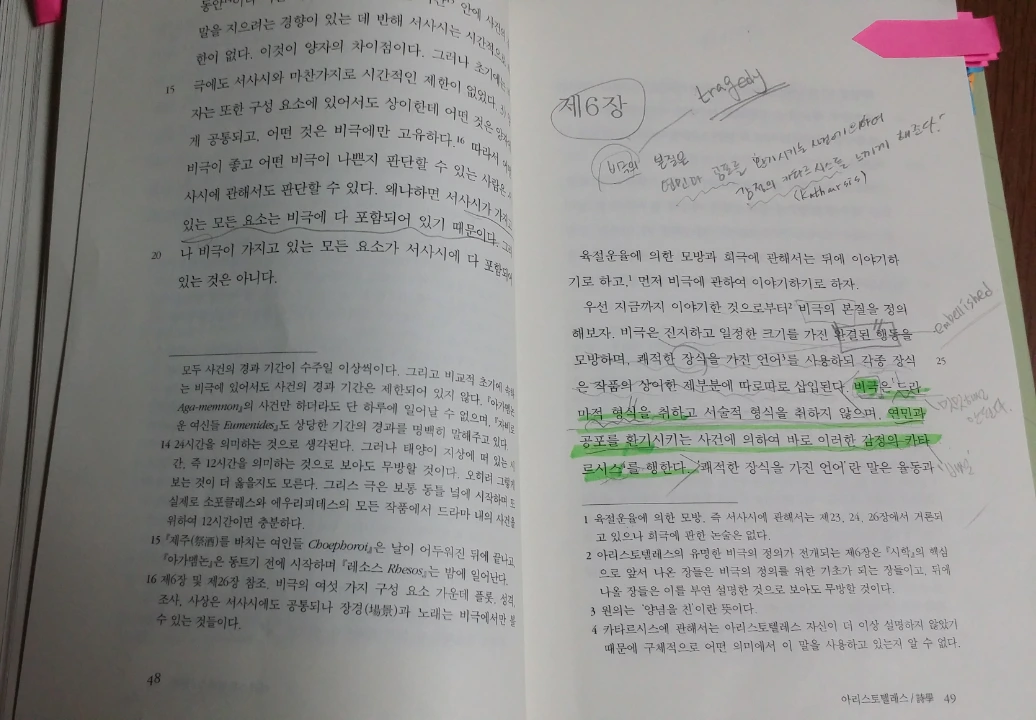 동안
말을 지으려는 경향이 있는 데 반해 서사시는 시간적으로
한이 없다. 이것이 양자의 차이점이다. 그러나 초기에는
15 극에도 서사시와 마찬가지로 시간적인 제한이 없었다.
자는 또한 구성 요소에 있어서도 상이한데 어떤 것은
게 공통되고, 어떤 것은 비극에만 고유하다.16 따라서
비극이 좋고 어떤 비극이 나쁜지 판단할 수 있는 사람은
사시에 관해서도 판단할 수 있다. 왜냐하면 서사시가
있는 모든 요소는 비극에 다 포함되어 있기 때문이다.
20 나 비극이 가지고 있는 모든 요소가 서사시에 다 포함되어
있는 것은 아니다.
모두 사건의 경과 기간이 수주일 이상씩이다. 그리고 비교적 초기에
는 비극에 있어서도 사건의 경과 기간은 제한되어 있지 않다. 『아가멤논
Aga-memnon』의 사건만 하더라도 단 하루에 일어날 수 없으며, 『자비로
운 여신들 Eumenides』도 상당한 기간의 경과를 명백히 말해주고 있다.
14 24시간을 의미하는 것으로 생각된다. 그러나 태양이 지상에 떠 있는
간, 즉 12시간을 의미하는 것으로 보아도 무방할 것이다. 오히려 그렇게
보는 것이 더 옳을지도 모른다. 그리스 극은 보통 동틀 녘에 시작하며
실제로 소포클레스와 에우리피데스의 모든 작품에서 드라마 내의 사건을
위하여 12시간이면 충분하다.
15 『제주(祭酒)를 바치는 여인들 Choephoroi』은 날이 어두워진 뒤에 끝나고,
『아가멤논』은 동트기 전에 시작하며 『레소스 Rhesos』는 밤에 일어난다.
16 제6장 및 제26장 참조. 비극의 여섯 가지 구성 요소 가운데 플롯, 성격,
조사, 사상은 서사시에도 공통되나 장경(場景)과 노래는 비극에서만 볼
수 있는 것들이다.
48
tragedy
제6장
비극의 본질은
연민과 공포를 환기시키는 사건에 의하여
감정의 카타르시스를 느끼게 해준다!
(Katharsis)
육절운율에 의한 모방과 희극에 관해서는 뒤에 이야기하
기로 하고,1 먼저 비극에 관하여 이야기하기로 하자.
우선 지금까지 이야기한 것으로부터2 비극의 본질을 정의
해보자. 비극은 진지하고 일정한 크기를 가진 완결된 행동을
embellished
모방하며, 쾌적한 장식을 가진 언어3를 사용하되 각종 장식 25
은 작품의 상이한 제부분에 따로따로 삽입된다. 비극은 드라
마적 형식을 취하고 서술적 형식을 취하지 않으며, 연민과
공포를 환기시키는 사건에 의하여 바로 이러한 감정의 카타
르시스4를 행한다. '쾌적한 장식을 가진 언어'란 말은 율동과
1 육절운율에 의한 모방, 즉 서사시에 관해서는 제23, 24, 26장에서 거론되
고 있으나 희극에 관한 논술은 없다.
2 아리스토텔레스의 유명한 비극의 정의가 전개되는 제6장은 『시학』의 핵심
으로 앞서 나온 장들은 비극의 정의를 위한 기초가 되는 장들이고, 뒤에
나올 장들은 이를 부연 설명한 것으로 보아도 무방할 것이다.
3 원의는 '양념을 친'이란 뜻이다.
4 카타르시스에 관해서는 아리스토텔레스 자신이 더 이상 설명하지 않았기
때문에 구체적으로 어떤 의미에서 이 말을 사용하고 있는지 알 수 없다.
아리스토텔레스/詩學 49